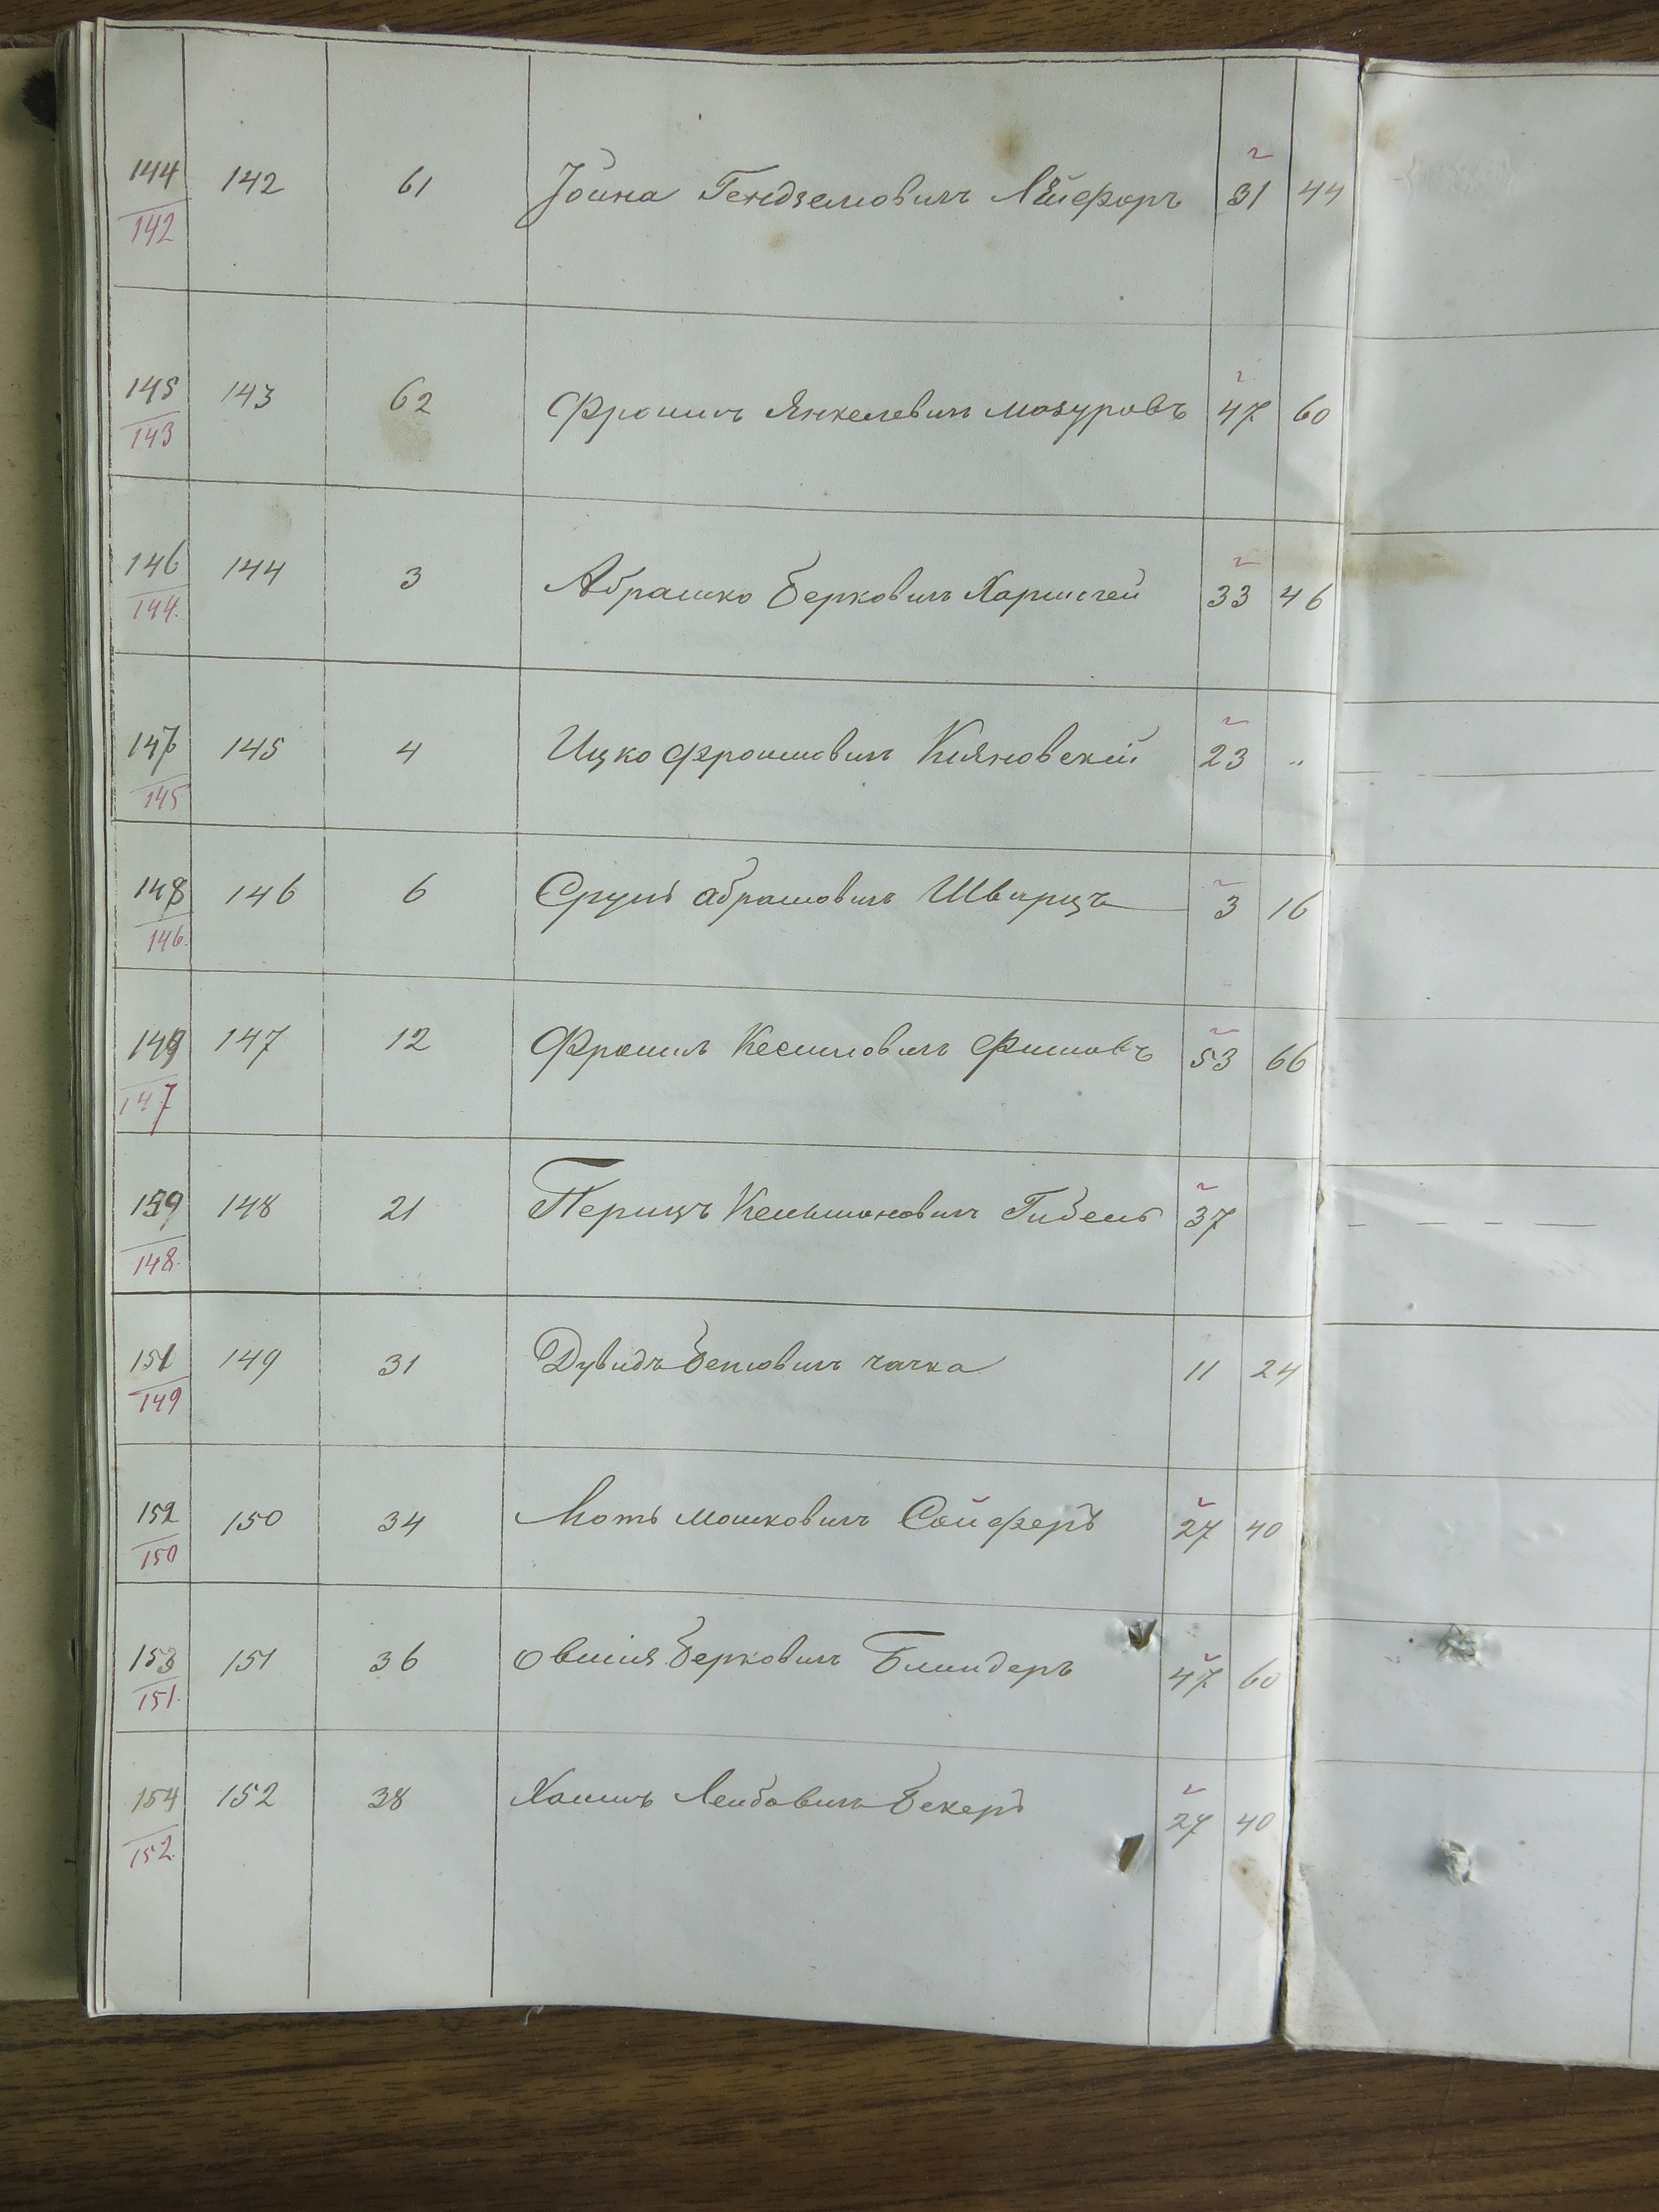 144 142 61 Іойна Гендзелиовичъ Лейферъ 31 44
142
145 143 62 Фроимъ Янкелевичъ мазуровъ 47 60
143
146 144 3 Абрашко Берковичъ 33 46
144.
147 145 4 Ицко Фроимовичъ Кіяновскій 23 "
145
148 146 6 Сруль абрамовичъ Шварцъ 3 16
146.
149 147 12 Фроимъ Кесилиовичъ Фишовъ 53 66
147
159 148 21 Перицъ Кельмановичъ Гибель 37
148.
151 149 31 Дувидъ Беніовичъ чачка 11 24
149
152 150 34 Моть мошковичъ Сойферъ 27 40
150
153 151 36 Овшія Берковичъ Блиндеръ 47 60
151.
154 152 38 Хаимъ Лейбовичъ Бекеръ 27 40
152.